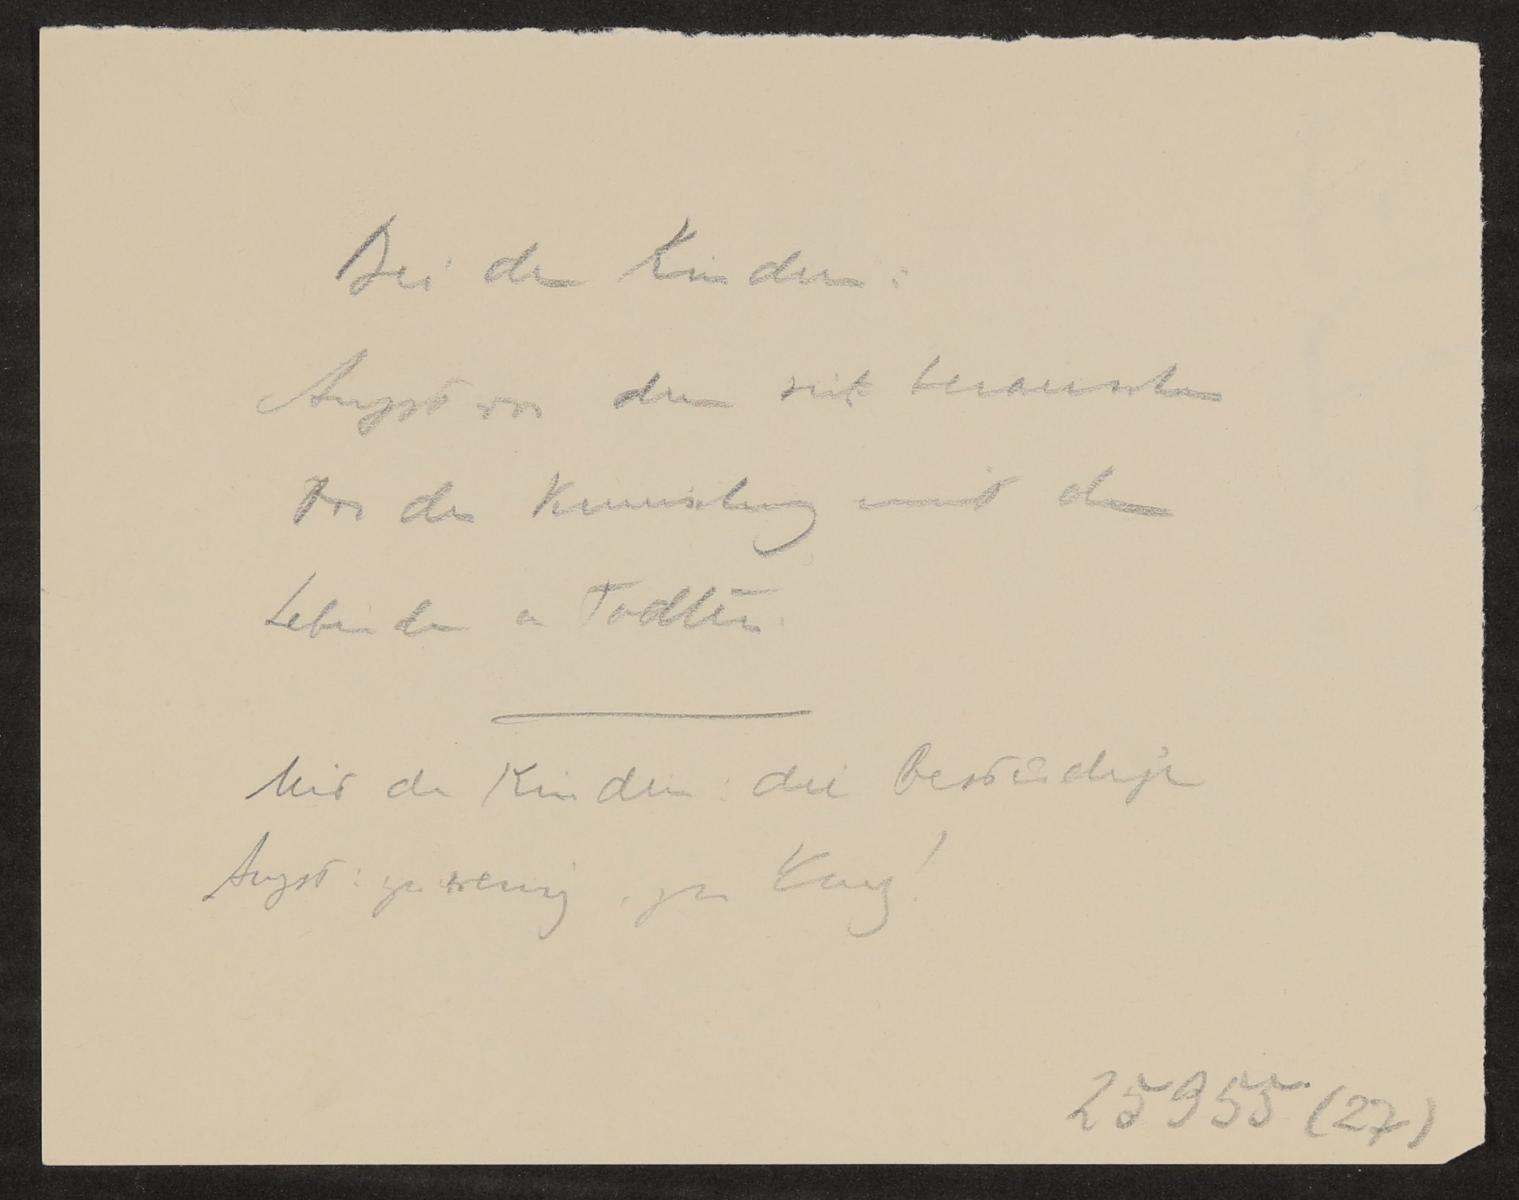 Bei den Kindern:
Angst vor dem sich berauschen
Vor der Vermischung mit den
Lebenden u Todten.
Mit den Kindern: die Beständige
Angst: zu wenig, zu karg!
25955 (27)